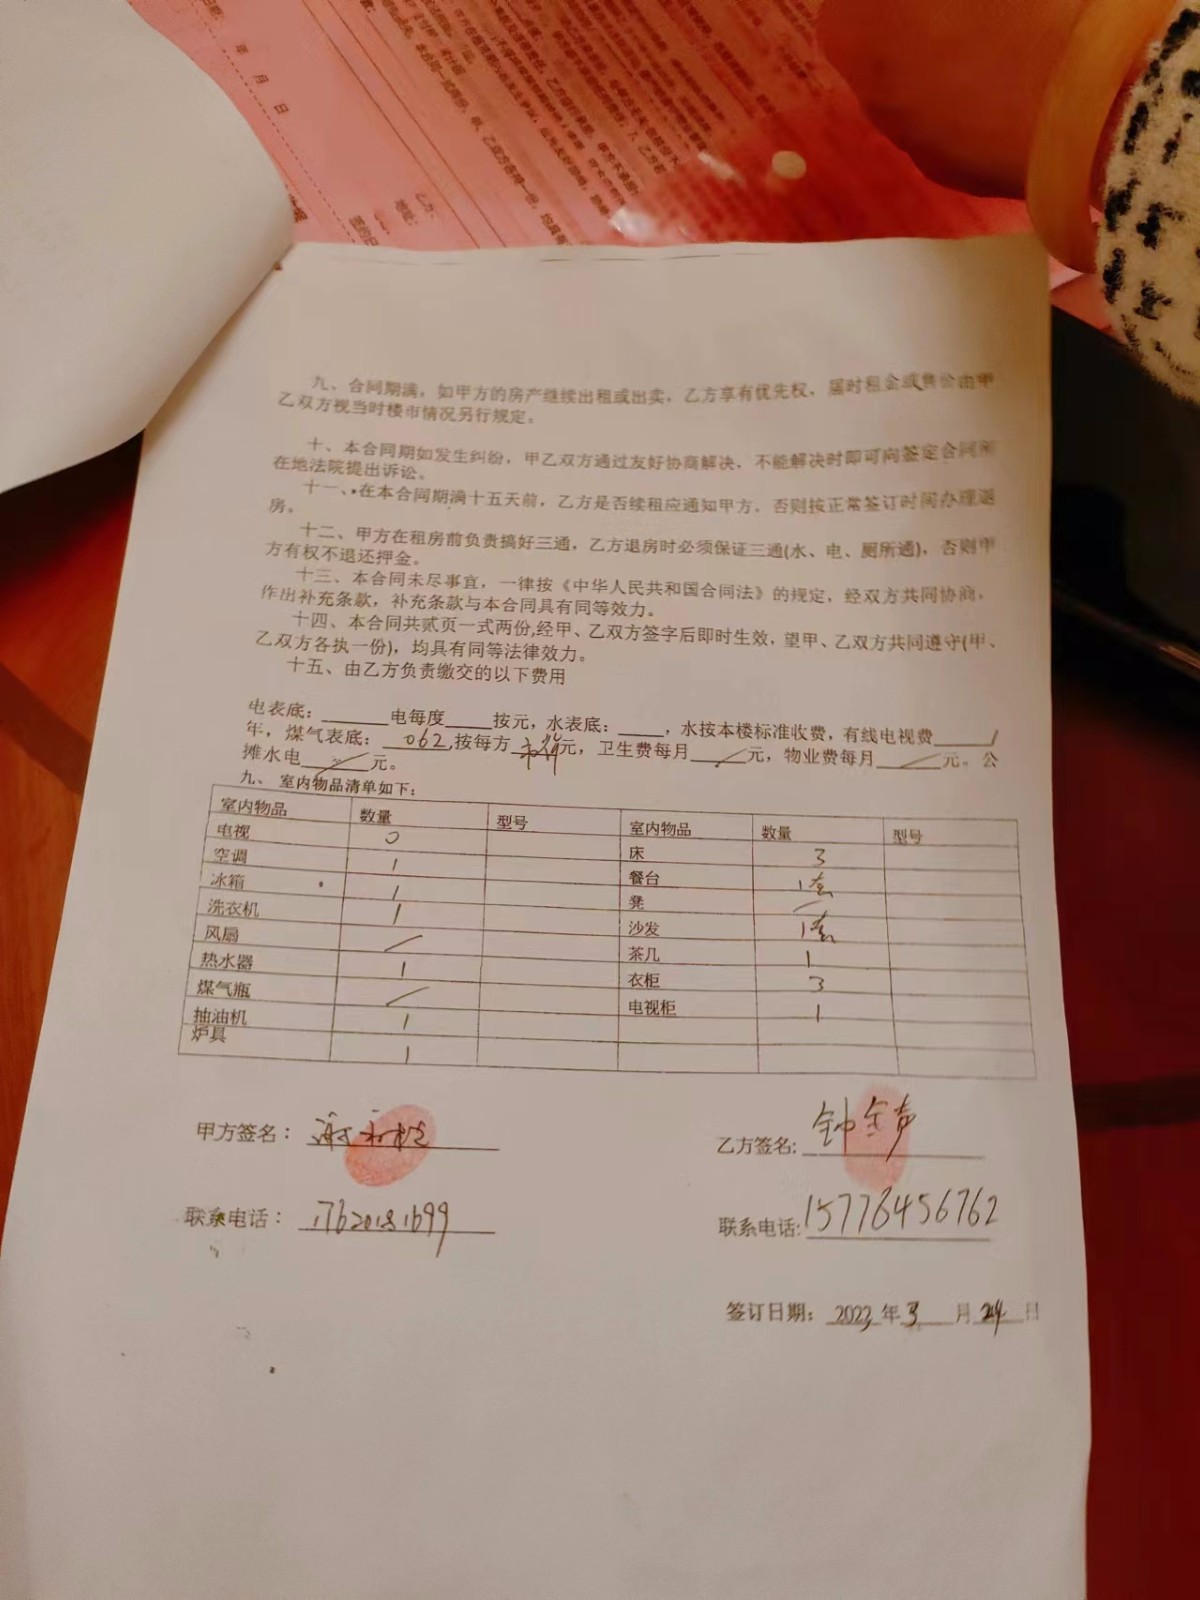 年 月 日
乙方:
九、合同期满，如甲方的房产继续出租或出卖，乙方享有优先权，届时租金或售价由甲
乙双方视当时楼市情况另行规定。
十、本合同期如发生纠纷，甲乙双方通过友好协商解决，不能解决时即可向签定合同所
在地法院提出诉讼。
十一、在本合同期满十五天前，乙方是否续租应通知甲方，否则按正常签订时间办理退
房。
十二、甲方在租房前负责搞好三通，乙方退房时必须保证三通(水、电、厕所通)，否则甲
方有权不退还押金。
十三、本合同未尽事宜，一律按《中华人民共和国合同法》的规定，经双方共同协商，
作出补充条款，补充条款与本合同具有同等效力。
十四、本合同共贰页一式两份,经甲、乙双方签字后即时生效，望甲、乙双方共同遵守(甲、
乙双方各执一份)，均具有同等法律效力。
十五、由乙方负责缴交的以下费用
电表底：______电每度____按元，水表底：____，水按本楼标准收费，有线电视费_____/
年，煤气表底：062,按每方 元，卫生费每月 / 元，物业费每月 / 元。公
摊水电 / 元。
九、 室内物品清单如下：
室内物品 数量 型号 室内物品 数量 型号
电视 0 床 3
空调 1 餐台 1套
冰箱 1 凳 /
洗衣机 1 沙发 1套
风扇 / 茶几 1
热水器 1 衣柜 3
煤气瓶 / 电视柜 1
抽油机 1
炉具 1
甲方签名： 乙方签名: 钟金声
联系电话： 17620181699 联系电话: 15778456762
签订日期： 2023 年 3 月 24 日